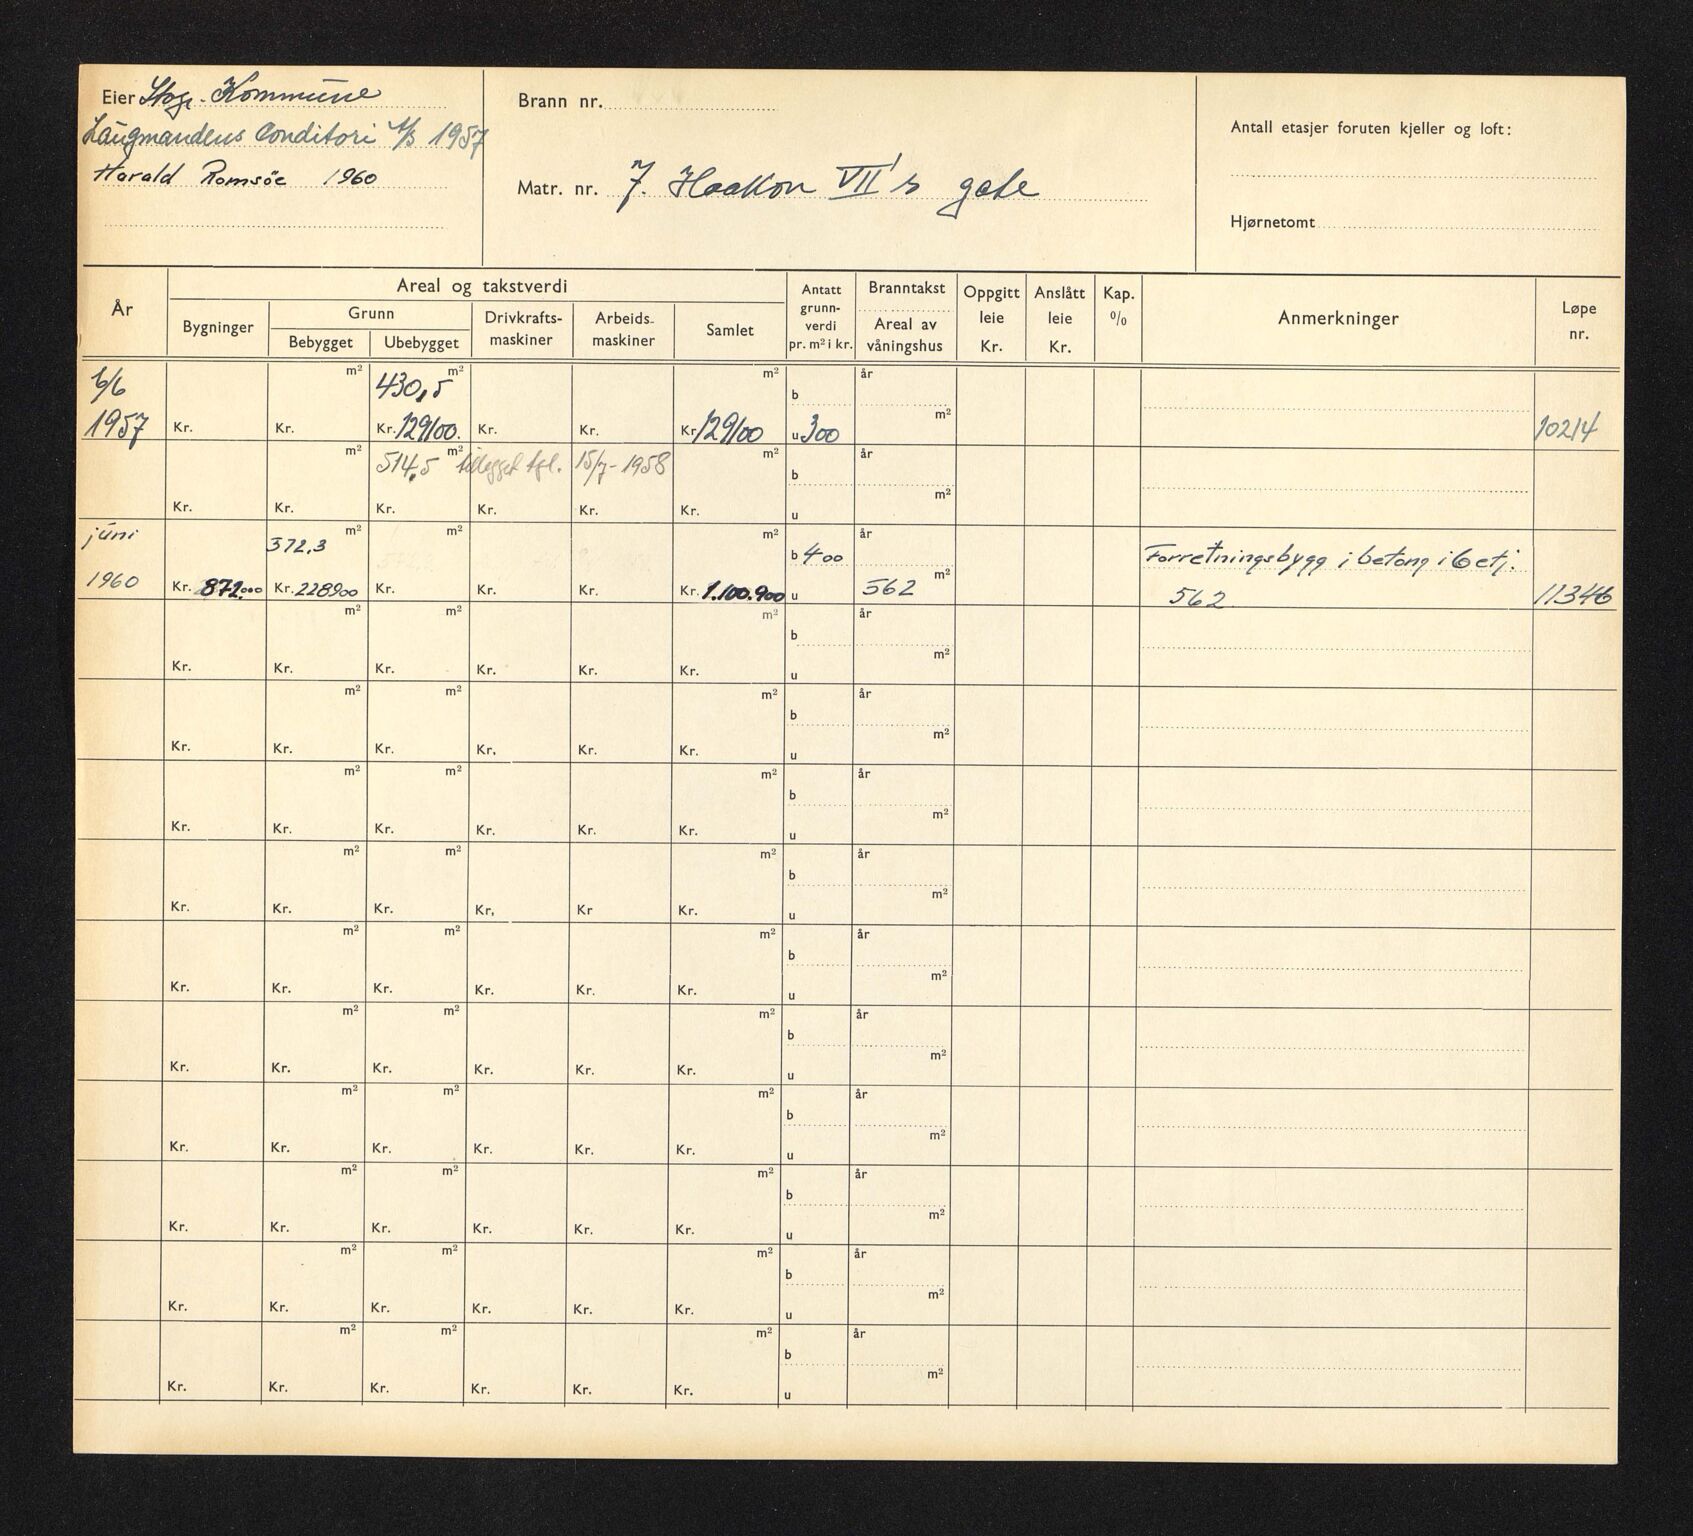 Eier Stvgr. Kommune
Laugmandens Conditori A/S 1957
Harald Romsöe 1960
Brann nr.
Matr. nr. 7. Haakon VII's gate
Antall etasjer foruten kjeller og loft:
Hjørnetomt
År
Areal og takstverdi
Bygninger
Grunn
Bebygget
Ubebygget
Drivkrafts-
maskiner
Arbeids-
maskiner
Samlet
Antatt
grunn-
verdi
pr. m² i kr.
Branntakst
Areal av
våningshus
Oppgitt
leie
Kr.
Anslått
leie
Kr.
Kap.
%
Anmerkninger
Løpe
nr.
6/6 m² 430,5 m² m² b år
1957 Kr. Kr. Kr. 129100. Kr. Kr. Kr. 129100 u 300 m² 10214
m² 514,5 m² tillegget tgl. 15/7-1958 m² b år
Kr. Kr. Kr. Kr. Kr. Kr. u m²
juni 572.3 m² m² m² b 400 år Forretningsbygg i betong i 6 etj.
1960 Kr. 872.000 Kr. 228900 Kr. Kr. Kr. Kr. 1.100.900 u 562 m² 562 11346
m² m² m² b år
Kr. Kr. Kr. Kr. Kr. Kr. u m²
m² m² m² b år
Kr. Kr. Kr. Kr. Kr. Kr. u m²
m² m² m² b år
Kr. Kr. Kr. Kr. Kr. Kr. u m²
m² m² m² b år
Kr. Kr. Kr. Kr. Kr Kr. u m²
m² m² m² b år
Kr. Kr. Kr. Kr. Kr. Kr. u m²
m² m² m² b år
Kr. Kr. Kr. Kr. Kr. Kr. u m²
m² m² m² b år
Kr. Kr. Kr. Kr. Kr. Kr. u m²
m² m² m² b år
Kr. Kr. Kr. Kr. Kr. Kr. u m²
m² m² m² b år
Kr. Kr. Kr. Kr. Kr. Kr. u m²
m² m² m² b år
Kr. Kr. Kr. Kr. Kr. Kr. u m²